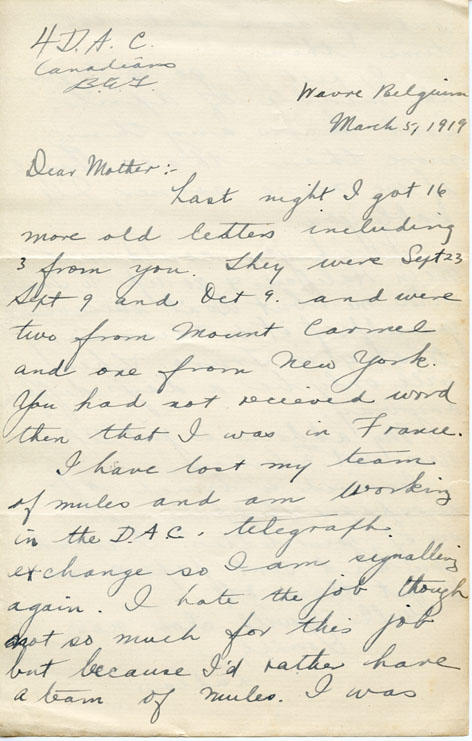 4 D.A.C.
Canadians
B.E.F.
Wavre Belguim
March 5, 1919
Dear Mother:-
Last night I got 16
more old letters including
3 from you. They were Sept 23
Spt 9 and Oct 9. and were
two from Mount Carmel
and one from New York.
You had not recieved word
then that I was in France.
I have lost my team
of mules and am working
in the D.A.C. telegraph
exchange so I am signalling
again. I hate the job though
not so much for this job
but because I'd rather have
a team of mules. I was